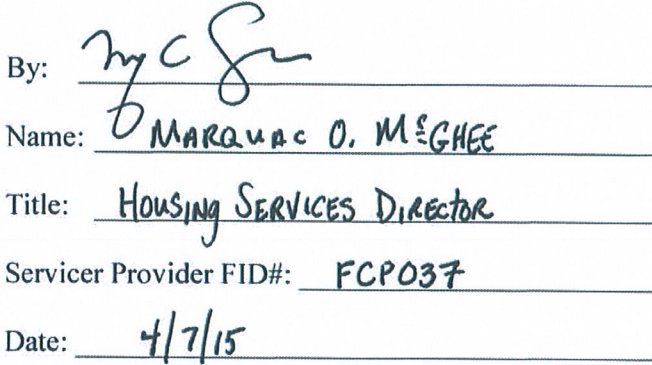 By:
Name: MARQUAC O. McGHEE
Title: HOUSING SERVICES DIRECTOR
Servicer Provider FID#: FCP037
Date: 4/7/15